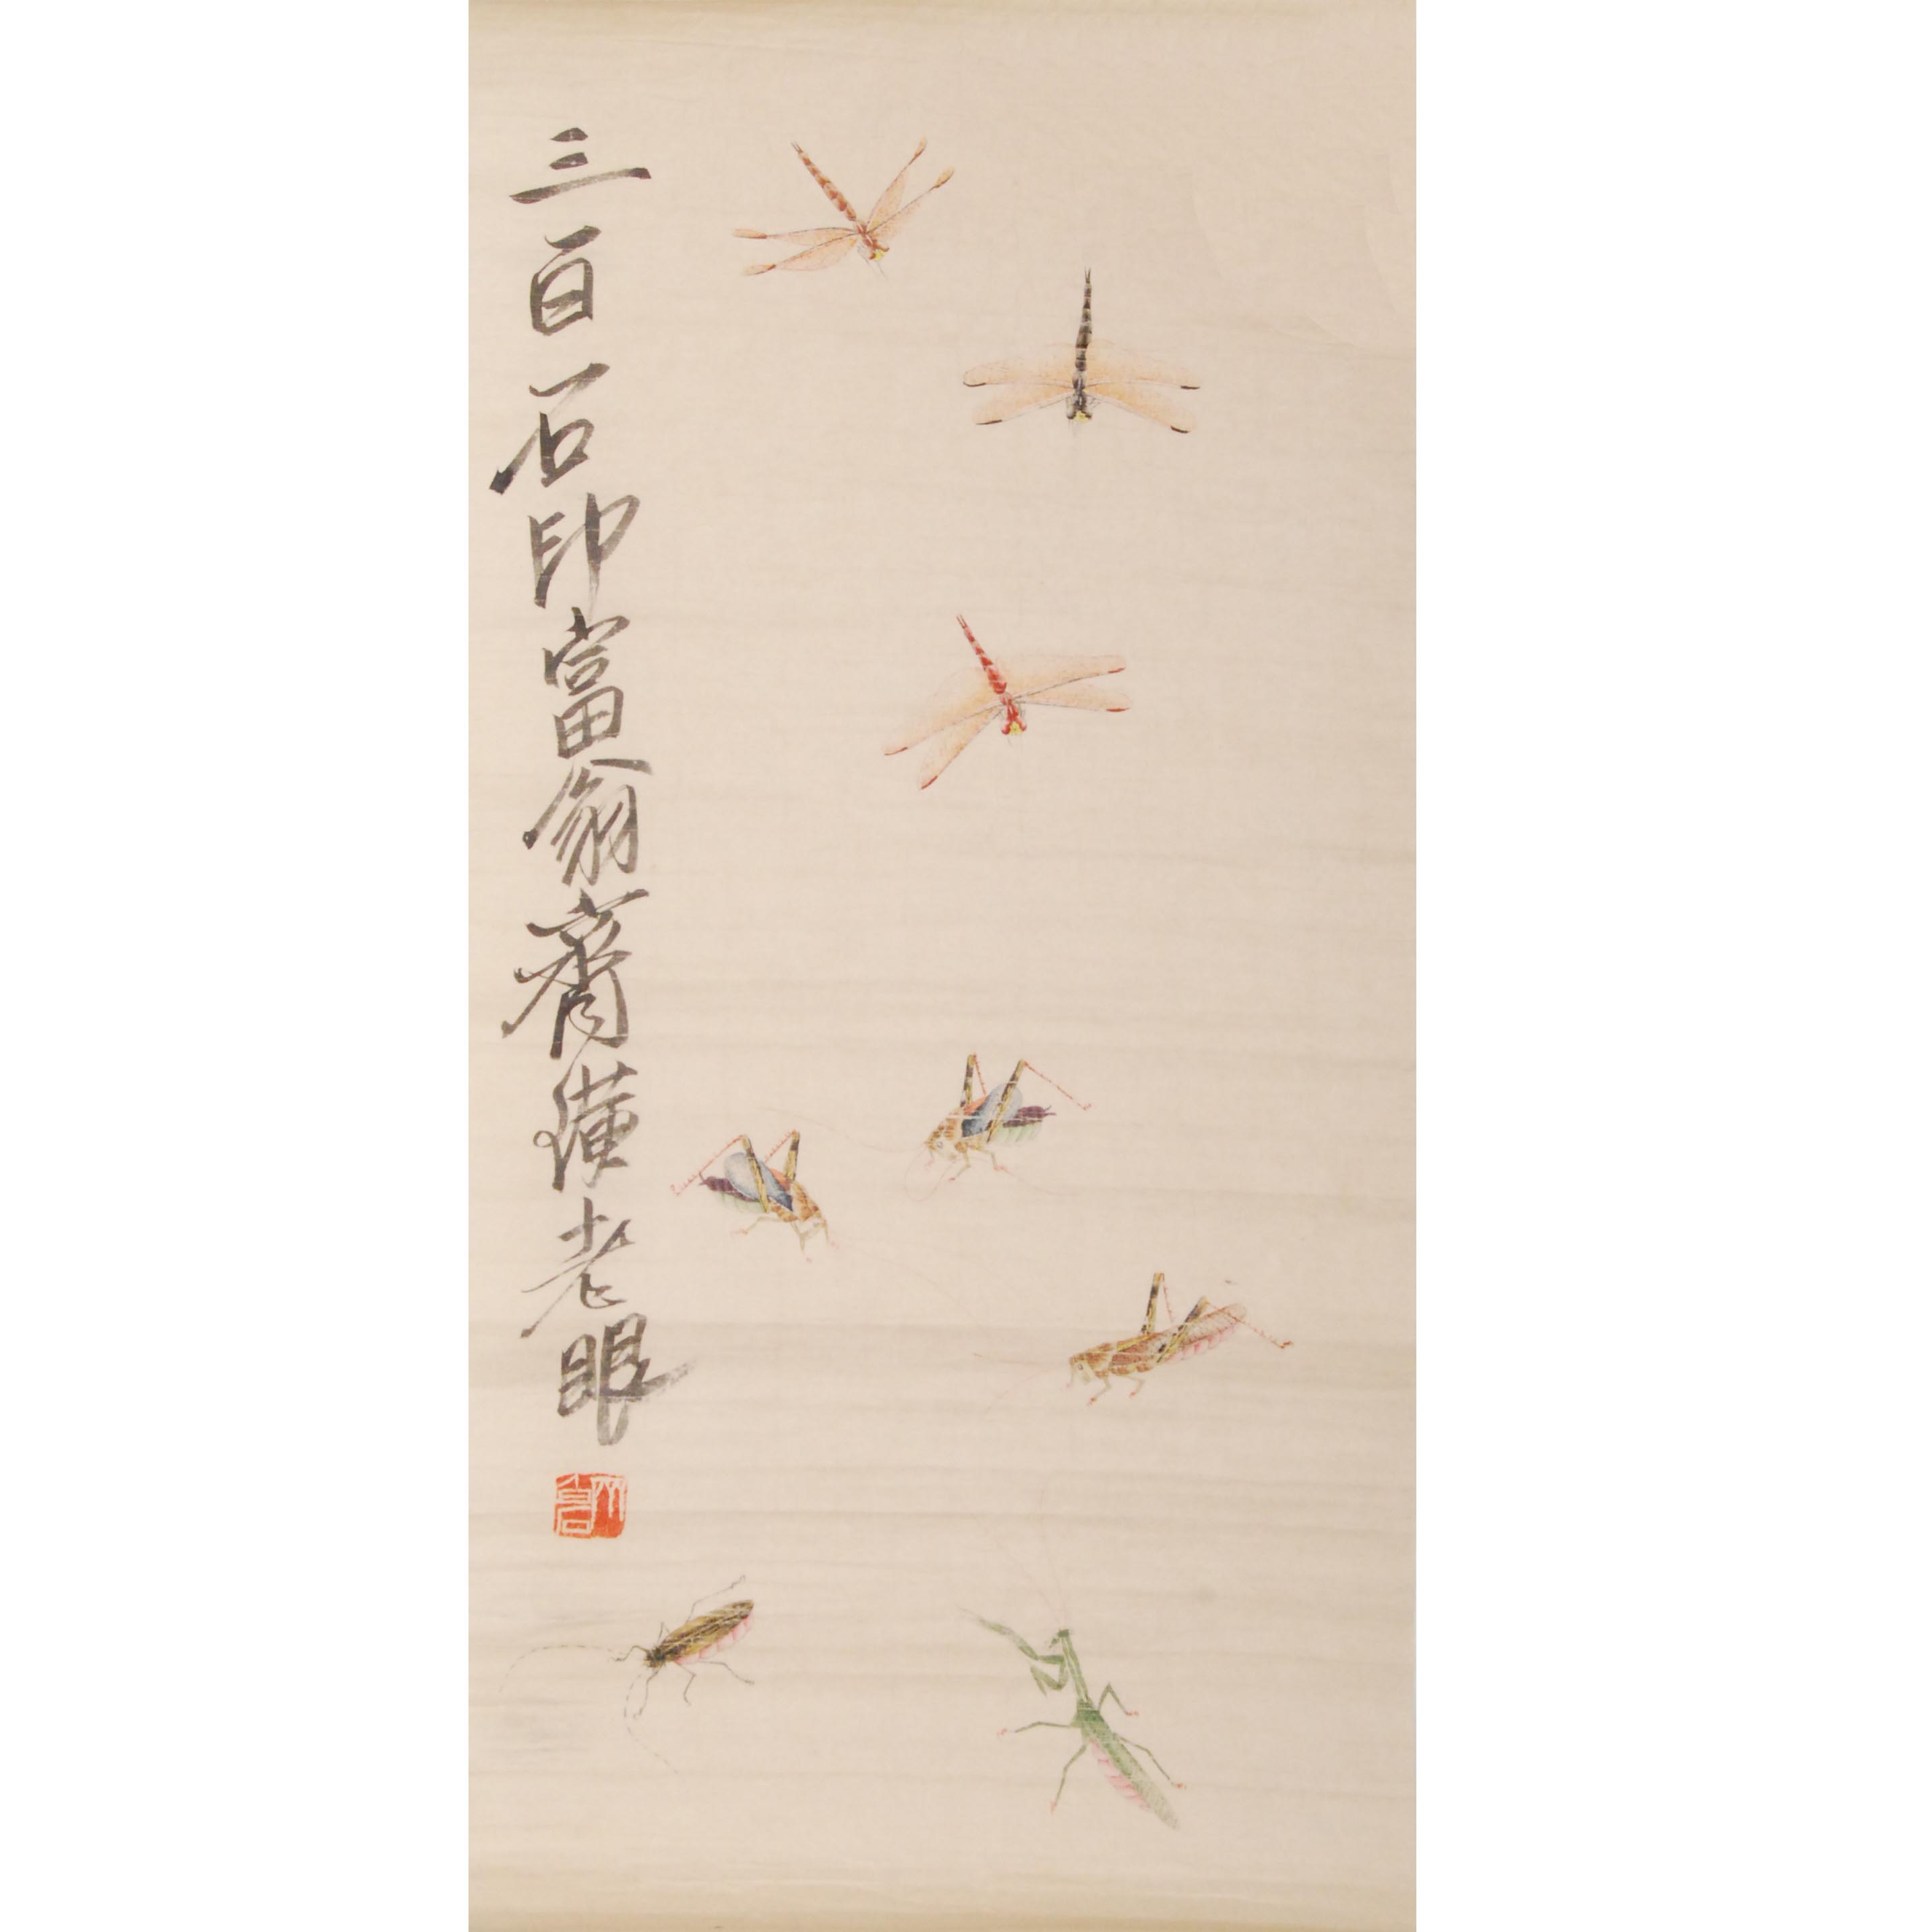 三百石印富翁齊璜老眼
木人